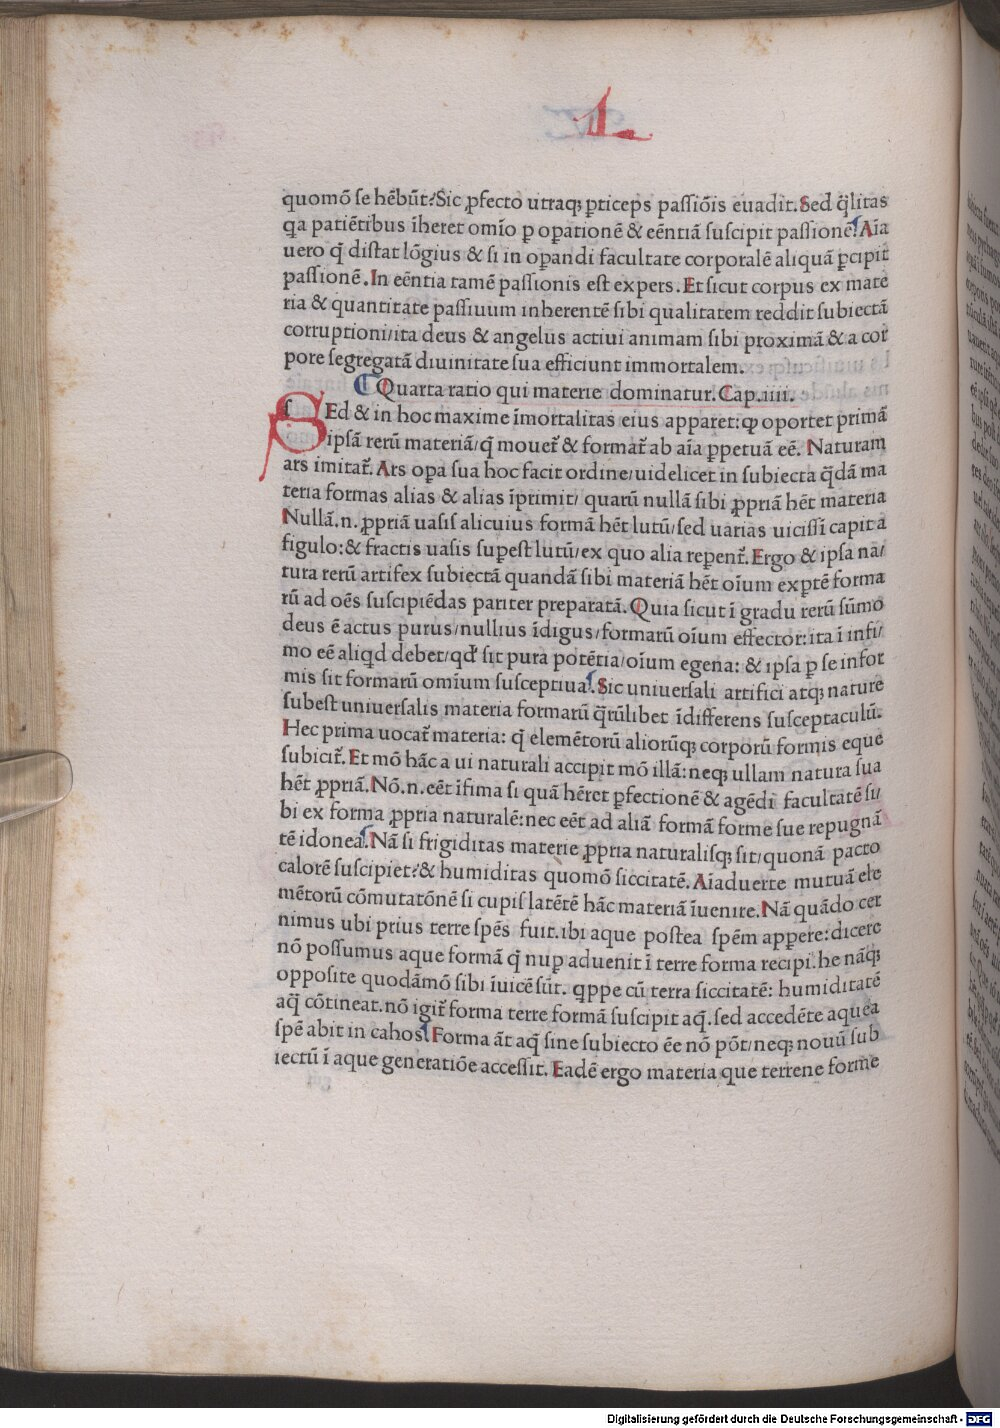 L
quomō se hēbūt?Sic ꝓfecto utraqꝫ ꝑticeps passiōis euadit.Sed q̄litas
qa patiētibus īheret omīo ꝑ oꝑationē & eēntiā suscipit passionē.Aīa
uero q̄ distat lōgius & si in oꝑandi facultate corporalē aliquā ꝑcipit
passionē.In eēntia tamē passionis est expers.Et sicut corpus ex mate
ria & quantitate passiuum inherentē sibi qualitatem reddit subiectā
corruptioni/ita deus & angelus actiui animam sibi proximā & a cor
pore segregatā diuinitate sua efficiunt immortalem.
Quarta ratio qui materie dominatur. Cap.iiii.
SEd & in hoc maxime īmortalitas eius apparet:ꝙ oportet primā
ipsā rerū materiā/q̄ mouet̄ & format̄ ab aīa ꝑpetuā eē. Naturam
ars imitat̄. Ars oꝑa sua hoc facit ordine/uidelicet in subiecta q̄dā ma
teria formas alias & alias īprimit/ quarū nullā sibi ꝓpriā hēt materia
Nullā.n.ꝓpriā uasis alicuius formā hēt lutū/sed uarias uicissī capit a
figulo:& fractis uasis suꝑest lutū/ex quo alia reꝑent̄. Ergo & ipsa na/
tura rerū artifex subiectā quandā sibi materiā hēt oīum exꝑtē forma
rū ad oēs suscipiēdas pariter preparatā. Quia sicut ī gradu rerū sūmo
deus ē actus purus/nullius īdigus/formarū oīum effector:ita ī infi/
mo eē aliqd debet/qd' sit pura potētia/oīum egena: & ipsa ꝑ se infor
mis sit formarū omīum susceptiua. Sic uniuersali artifici atqꝫ nature
subest uniuersalis materia formarū q̄rūlibet īdifferens susceptaculū.
Hec prima uocat̄ materia: q̄ elemētorū aliorūqꝫ corporū formis eque
subicit̄. Et mō hāc a ui naturali accipit mō illā:neqꝫ ullam natura sua
hēt ꝓpriā.Nō.n.eēt īfima si quā hēret ꝑfectionē & agēdi facultatē si/
bi ex forma ꝓpria naturalē:nec eēt ad aliā formā forme sue repugnā
tē idonea.Nā si frigiditas materie ꝓpria naturalisqꝫ sit/quonā pacto
calorē suscipiet?& humiditas quomō siccitatē.Aīaduerte mutuā ele
mētorū cōmutatōnē si cupis latētē hāc materiā īuenire.Nā quādo cer
nimus ubi prius terre spēs fuit.ibi aque postea spēm apꝑere:dicere
nō possumus aque formā q̄ nuꝑ aduenit ī terre forma recipi.he nāqꝫ
opposite quodāmō sibi īuicē sūt. qppe cū terra siccitatē: humiditatē
aq̄ cōtineat.nō igit̄ forma terre formā suscipit aq̄.sed accedēte aquea
spē abit in cahos.Forma āt aq̄ sine subiecto ēe nō pōt/neqꝫ nouū sub
iectū ī aque generatiōe accessit. Eadē ergo materia que terrene forme
Digitalisierung gefördert durch die Deutsche Forschungsgemeinschaft - DFG